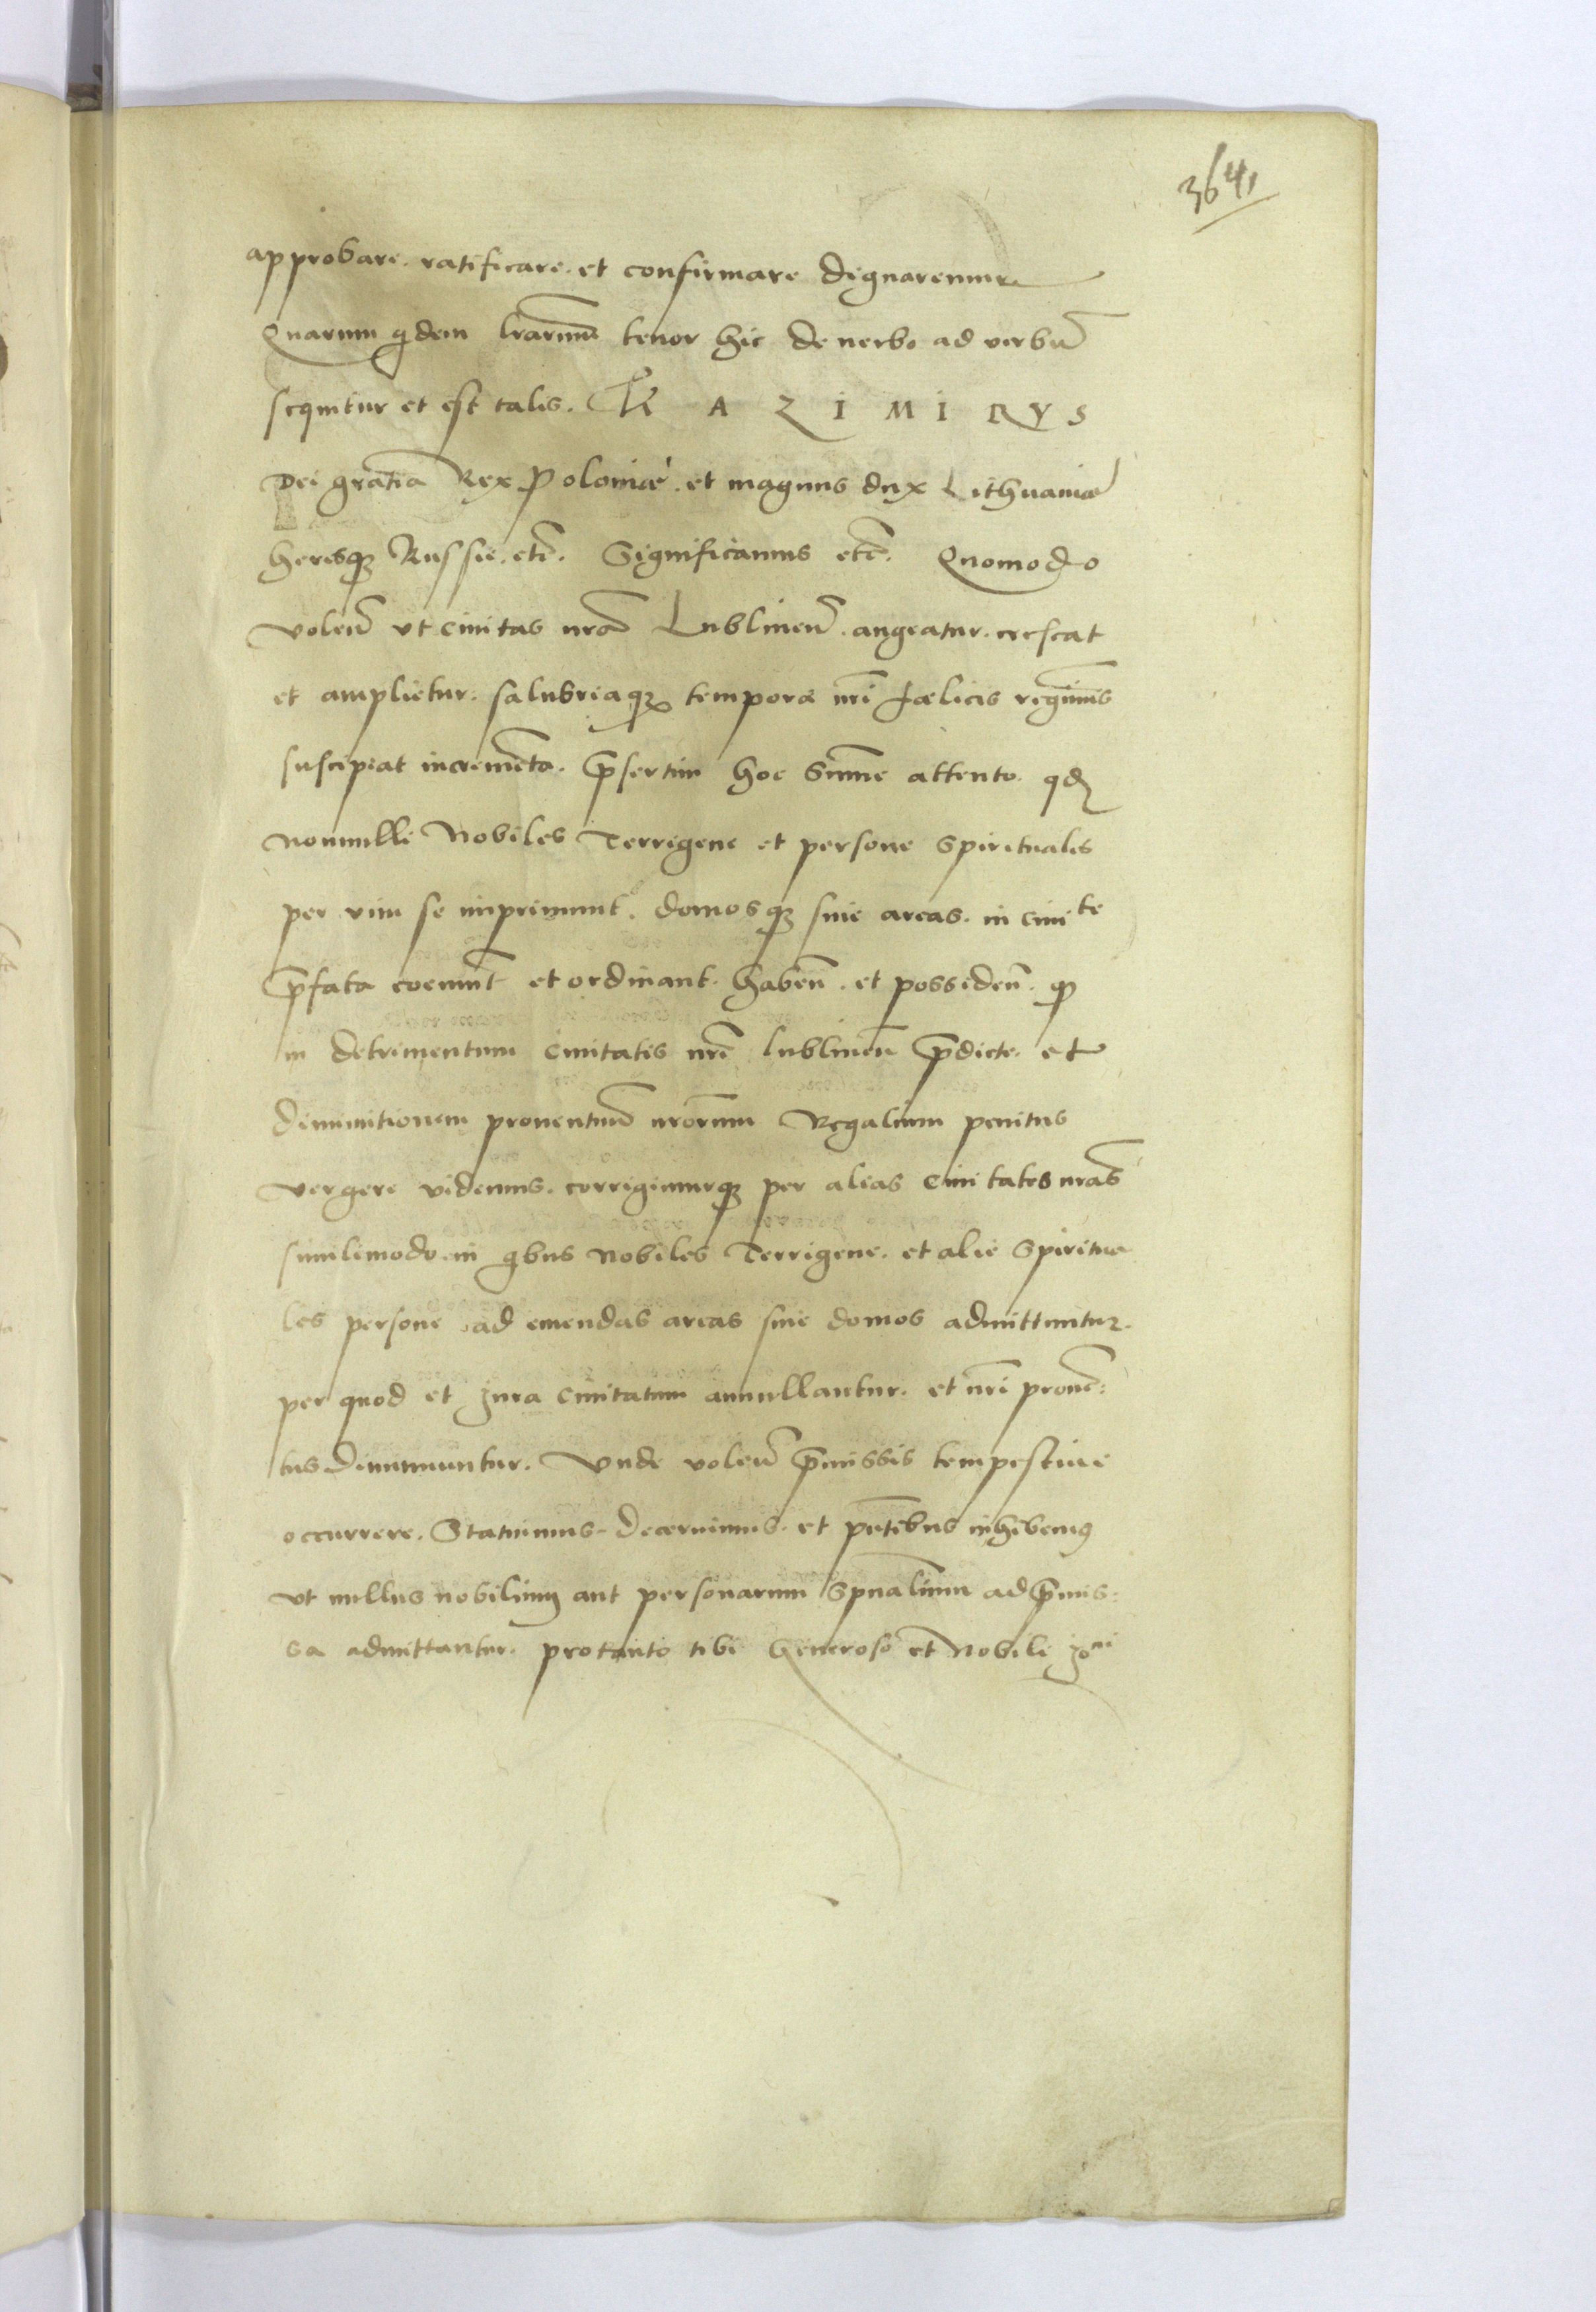 364,
approbare. ratificare. et confirmare dignaremur
Quarum qdem lrarum̄ tenor hic de uerbo ad verbū
sequitur et est talis. K A Z I M I R V S
Dei gratia Rex Poloniæ. et magnus dux Lithuaniæ
heresq3 Russie. etc̄. Significamus etc̄. Quomodo
volen̄ vt ciuitas nr̄a Lublinen̄. augeatur. crescat
et amplietur. salubriaq3 tempore nr̄i fœlicis regiminis
suscipiat incremēta. p̄sertim hoc Summe attento. qd
nonnulli Nobiles Terrigene et persone Spirituales
per vim se imprimunt. domosq3 siue areas. in ciuite
p̄fata coemunt et ordinant. haben̄. et possiden̄. q̄
in detrimentum ciuitatis nr̄e lublinen̄ p̄dicte. et
diminutionem prouentuū nrōrum Regalium penitus
vergere videmus. corrigimurq3 per alias Ciuitates nrās
similimodo in qbus Nobiles Terrigene. et alie Spiritua
les persone ad emendas areas siue domos admittuntur.
per quod et Jura Ciuitatum annullantur. et nr̄i prouē:
tus Diminuuntur. Vnde volen̄ p̄missis tempestiue
occurrere. Statuimus. Decernimus. et pn̄tibus inhibemus
vt nullus nobilium aut personarum Spūalium ad p̄mis:
sa admittantur. protanto tibi Generoso et Nobili Joni